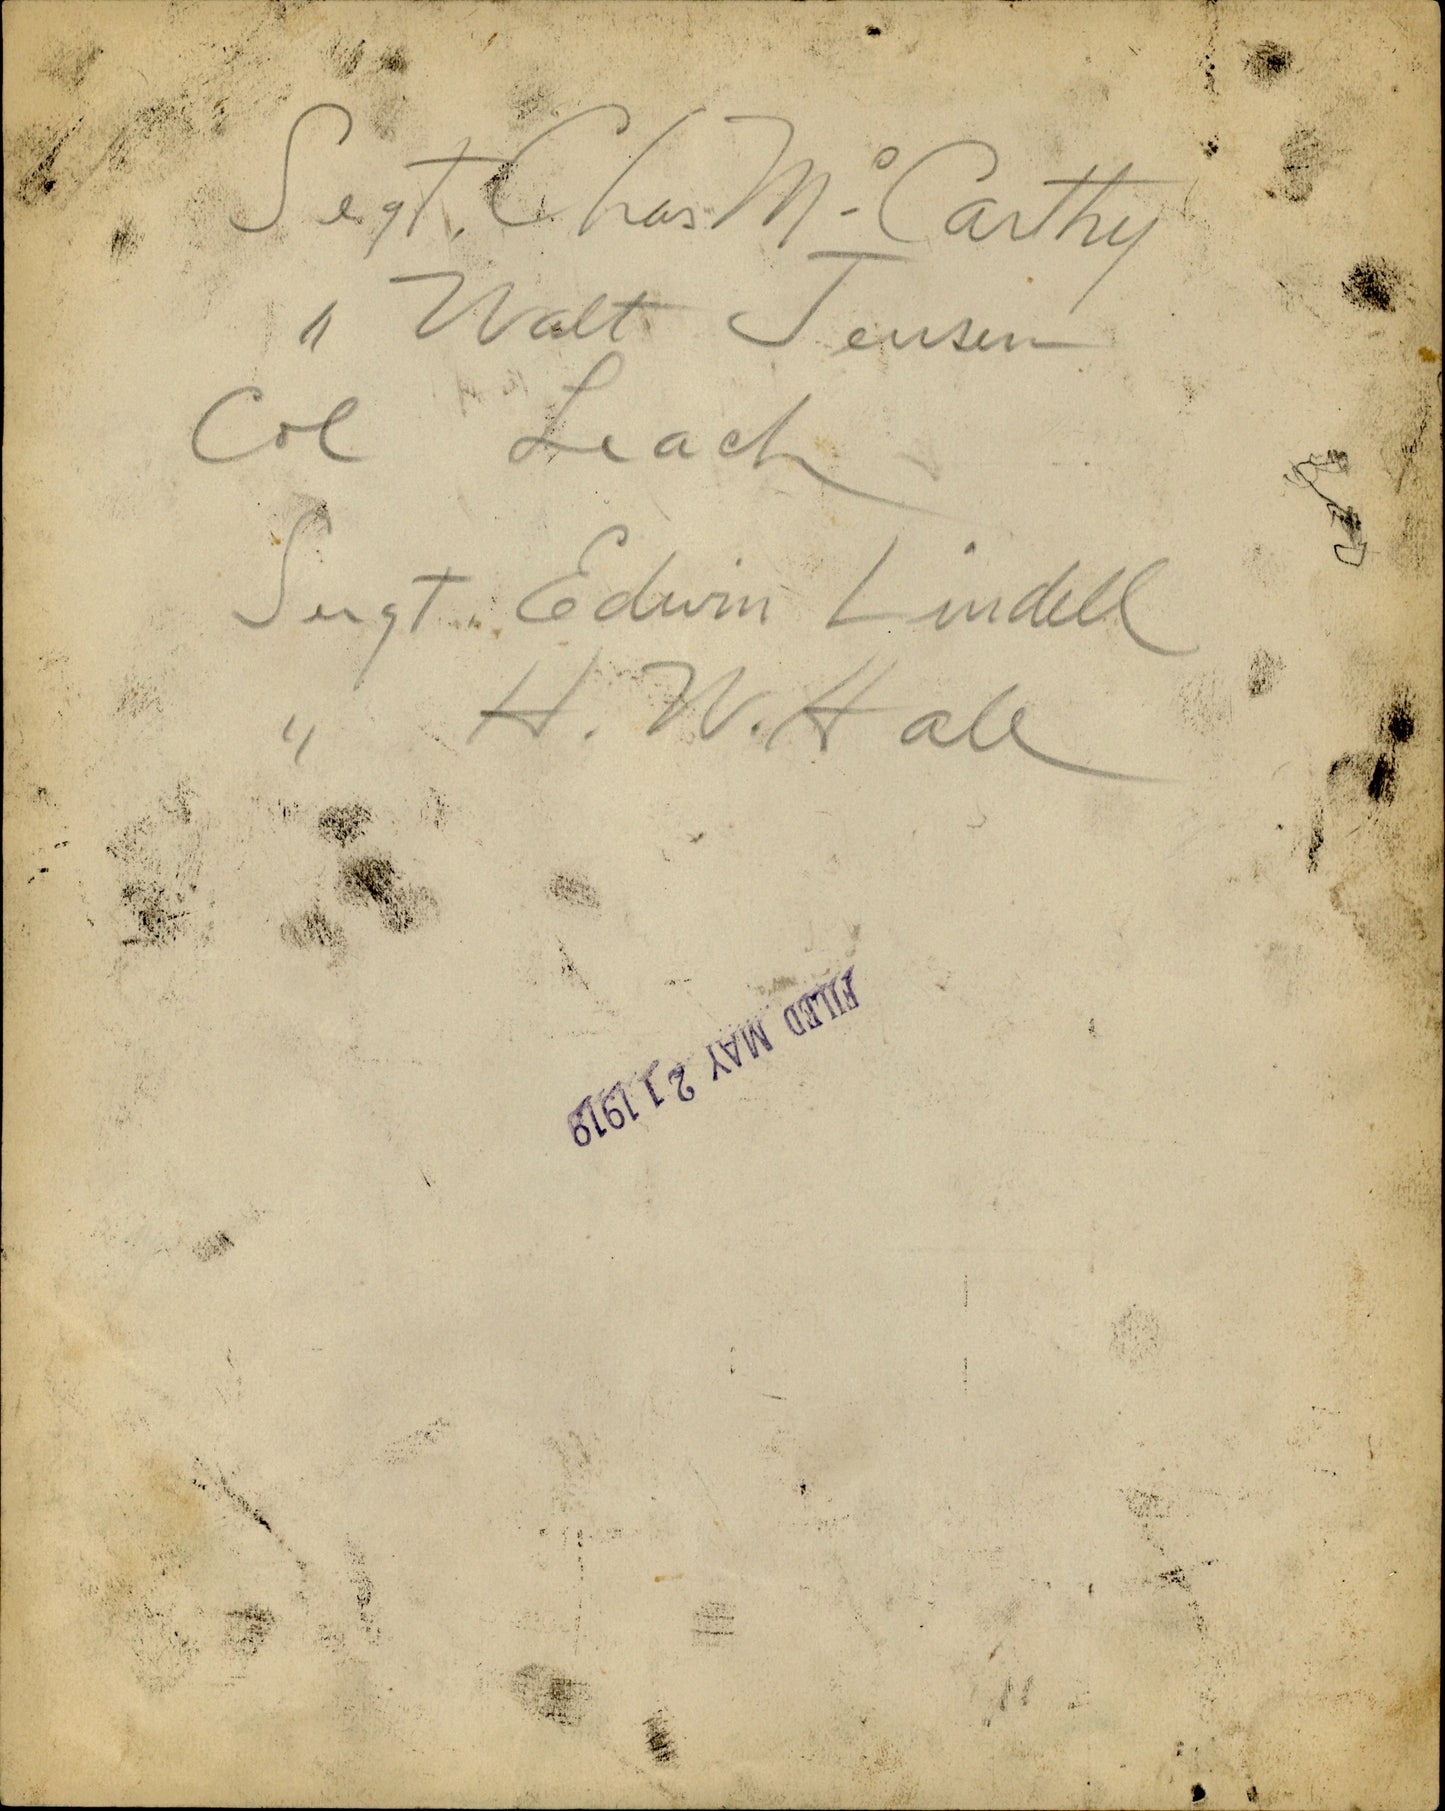 Segt. Chas McCarthy
" Walt Jensen
Col Leach
Sergt. Edwin Lindell
" H. W. Hale
FILED MAY 21 1919